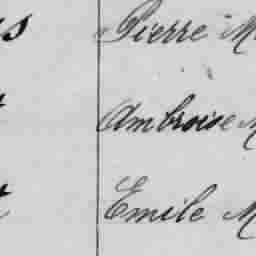 Pierre M
Ambroise M
Emile M